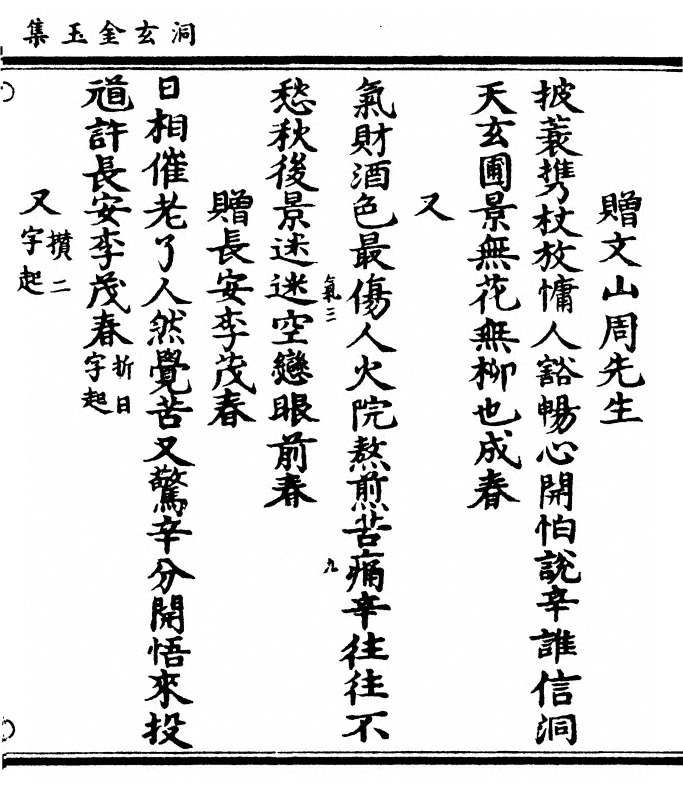 洞玄金玉集
贈文山周先生
披蓑携杖放慵人豁暢心開怕說辛誰信洞
天玄圃景無花無柳也成春
又
氣財酒色最傷人火院熬煎苦痛辛往往不
氣三
九
愁秋後景迷迷空戀眼前春
贈長安李茂春
日相催老了人然覺苦又驚辛分開悟來投
道許長安李茂春折日字起
又攢二字起